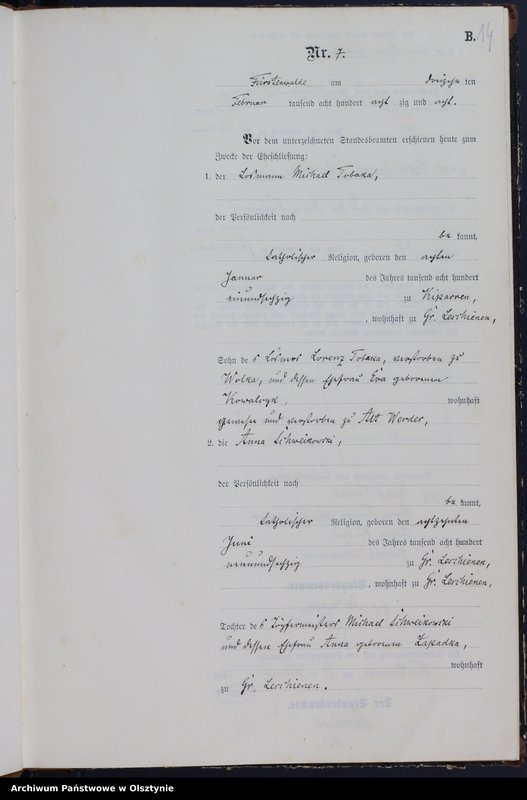 B. 14
Nr. 7.
Fürstenwalde am dreizehn ten
Februar tausend acht hundert acht zig und acht.
Vor dem unterzeichneten Standesbeamten erschienen heute zum
Zwecke der Eheschließung:
1. der Losmann Michael Tobaka,
der Persönlichkeit nach
be kannt,
katholischer Religion, geboren den achten
Januar des Jahres tausend acht hundert
einundsechzig zu Kiparren,
, wohnhaft zu Gr. Leschienen,
Sohn des Losmanns Lorenz Tobaka, verstorben zu
Wolka, und dessen Ehefrau Eva geborenen
Kowalczyk, wohnhaft
gewesen und verstorben zu Alt Werder,
2. die Anna Schweikowski,
der Persönlichkeit nach
be kannt,
katholischer Religion, geboren den achtzehnten
Juni des Jahres tausend acht hundert
neunundsechzig zu Gr. Leschienen,
, wohnhaft zu Gr. Leschienen,
Tochter des Töpfermeisters Michael Schweikowski
und dessen Ehefrau Anna geborenen Zapadka,
wohnhaft
zu Gr. Leschienen.
Archiwum Państwowe w Olsztynie